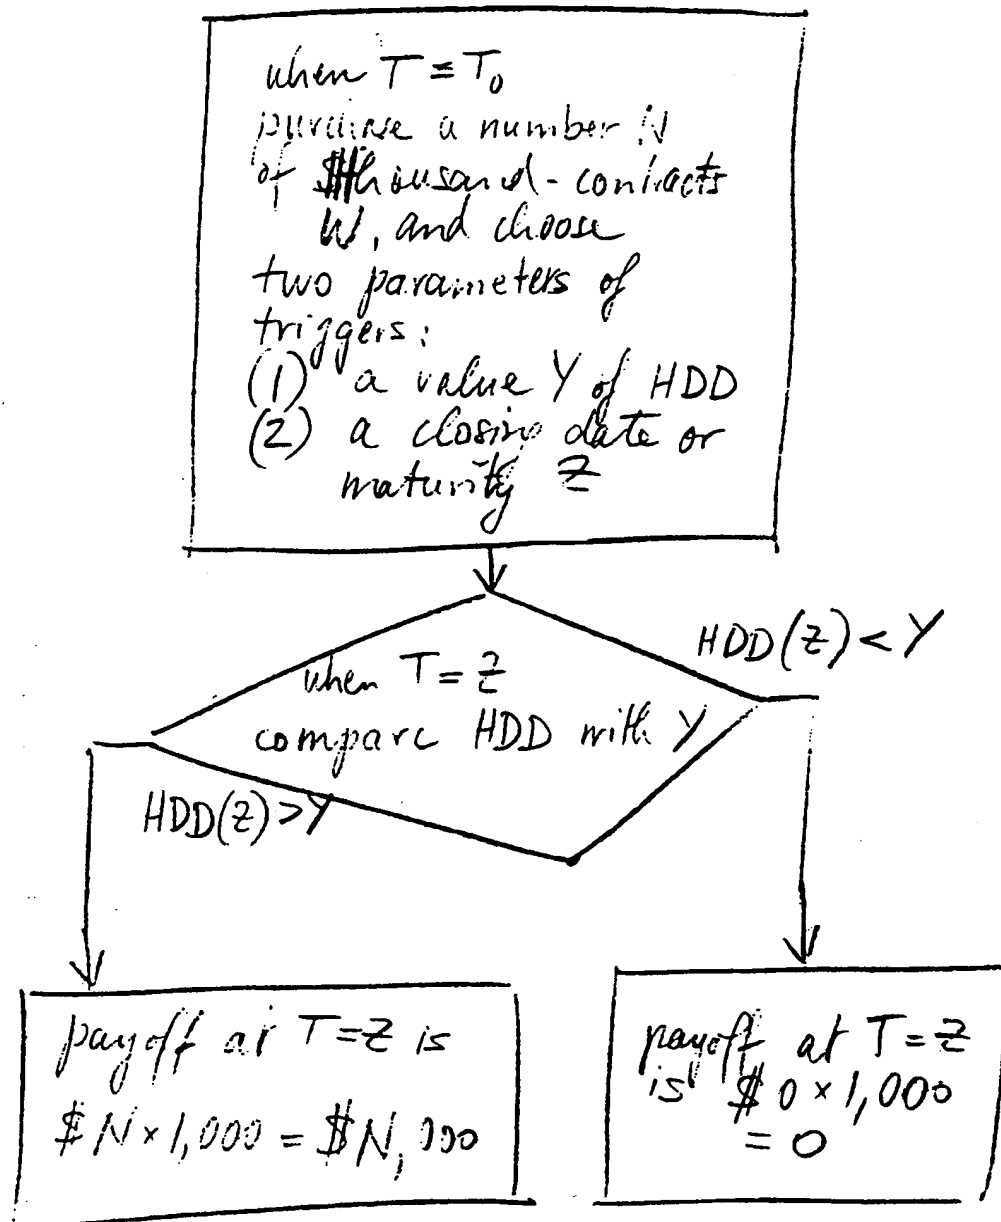 when T = T₀
purchase a number N
of $thousand-contracts
W, and choose
two parameters of
triggers:
(1) a value Y of HDD
(2) a closing date or
maturity Z
HDD(Z) < Y
when T = Z
compare HDD with Y
HDD(Z) > Y
payoff at T = Z is
$ N × 1,000 = $N,000
payoff at T = Z
is $ 0 × 1,000
= 0